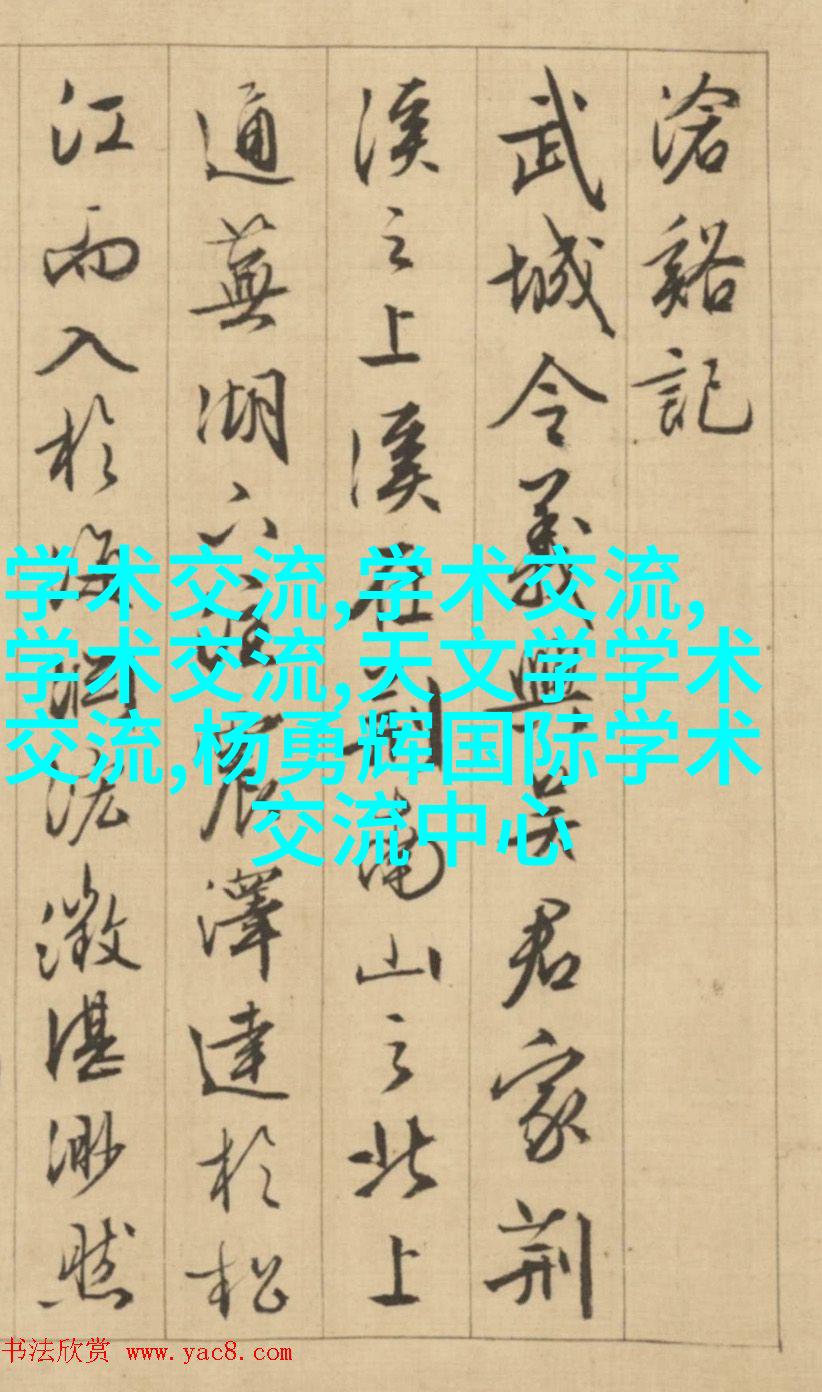 滄谿記
武城令義興吳君家荆
溪之上溪在荆南山之北上
通蕪湖下震澤達於松
江而入於海泓澂湛渺然
学术交流,学术交流,
学术交流,天文学学术
交流,杨勇辉国际学术
交流中心
书法欣赏 www.yac8.com